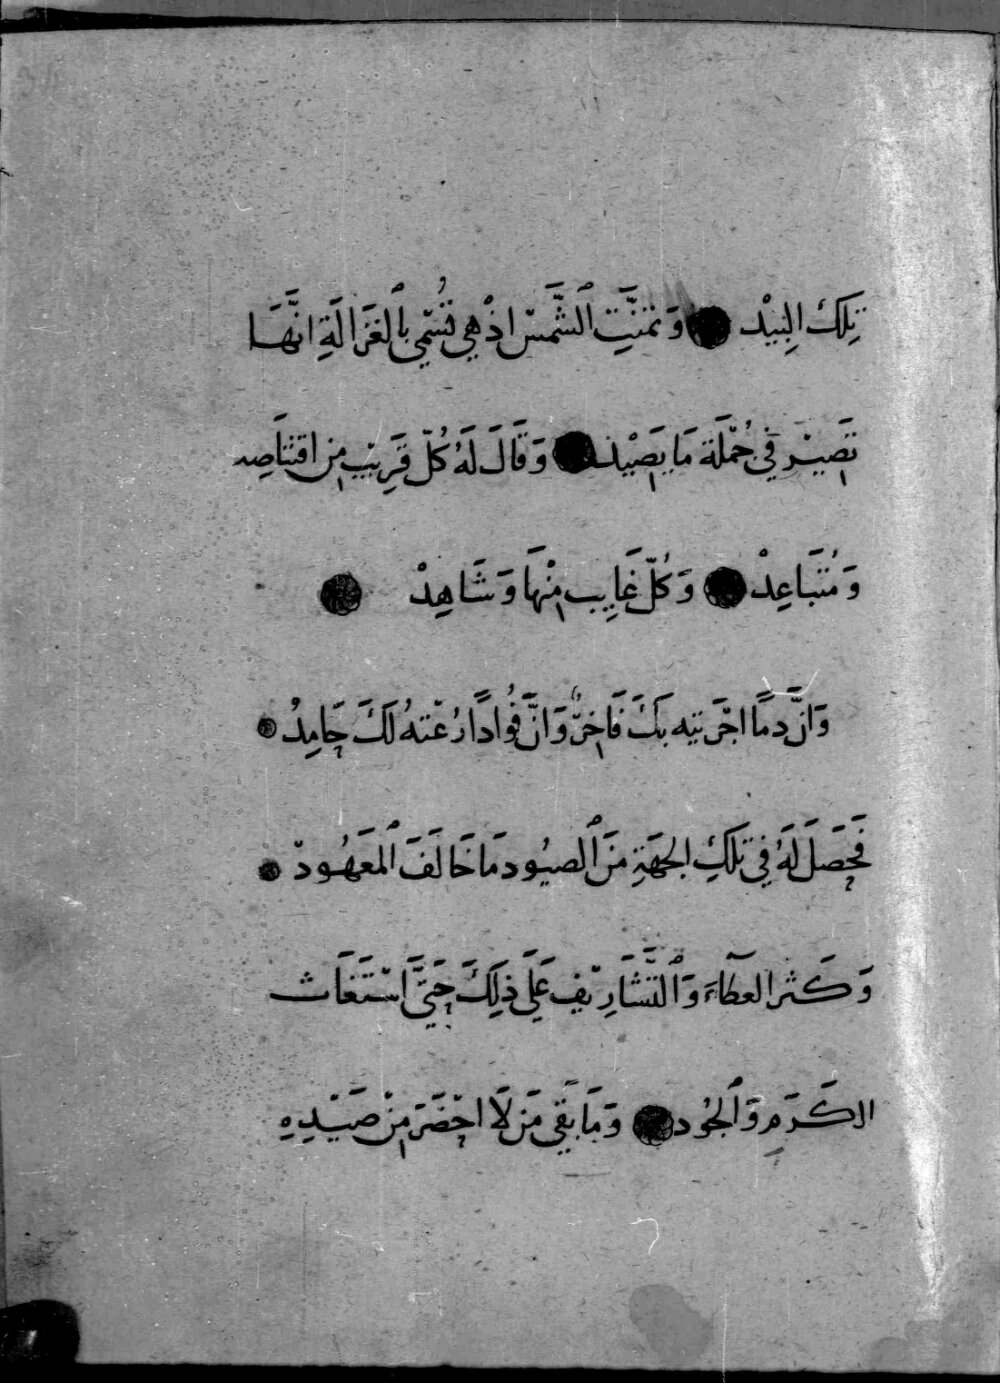 تِلكَ البِيْد ● وَتمَنَّتِ ٱلشَّمسُ اذْ هِي تُسَمّي بِٱلغَزَالَةِ انَّهَا
تَصِيْر فِي جُمْلَة مَا يَصِيْد ● وَقَالَ لَهُ كُلّ قَرِيْبٍ مِن اقتِنَاصِه
وَمُتَبَاعِدْ ● وَكُلّ غَايِبٍ مِنْهَا وَشَاهِدْ ●
وَانَّ دمًا اجْرَيتَه بكَ فَاخِرٌ وَانَّ فُوادًا رُعْتَهُ لَكَ حَامِدُ ●
فَحَصَلَ لَهُ فِي تلكَ الجهَةِ مِنَ ٱلصيُود مَا خَالَفَ ٱلمَعهُود ●
وَكَثر العطَآءَ وَٱلتَّشَارِيْف عَلَى ذلِكَ حَتَّى اسْتَغَاث
الكَرَمِ وَٱلجُود ● وَمَا بَقَي مَن لَا احْضَرَ مِنْ صَيْدِهِ